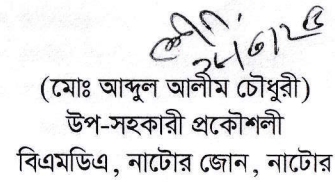 ২৮/৩/২৪
(মোঃ আব্দুল আলীম চৌধুরী)
উপ-সহকারী প্রকৌশলী
বিএমডিএ, নাটোর জোন, নাটোর